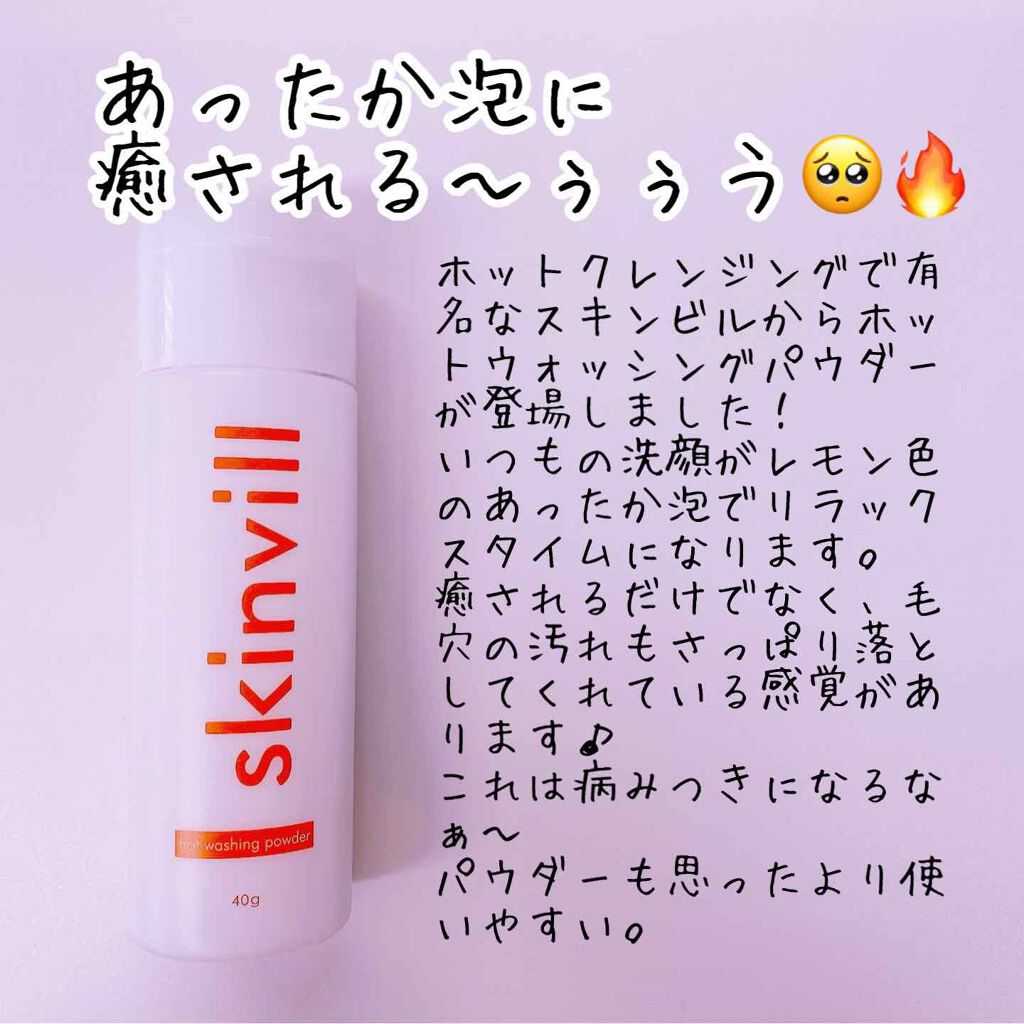 あったか泡に
癒される〜ぅぅう🥺🔥
ホットクレンジングで有
名なスキンビルからホッ
トウォッシングパウダー
が登場しました!
いつもの洗顔がレモン色
のあったか泡でリラック
スタイムになります。
癒されるだけでなく、毛
穴の汚れもさっぱり落と
してくれている感覚があ
ります♪
これは病みつきになるな
ぁ〜
パウダーも思ったより使
いやすい。
skinvill
hot washing powder
40g